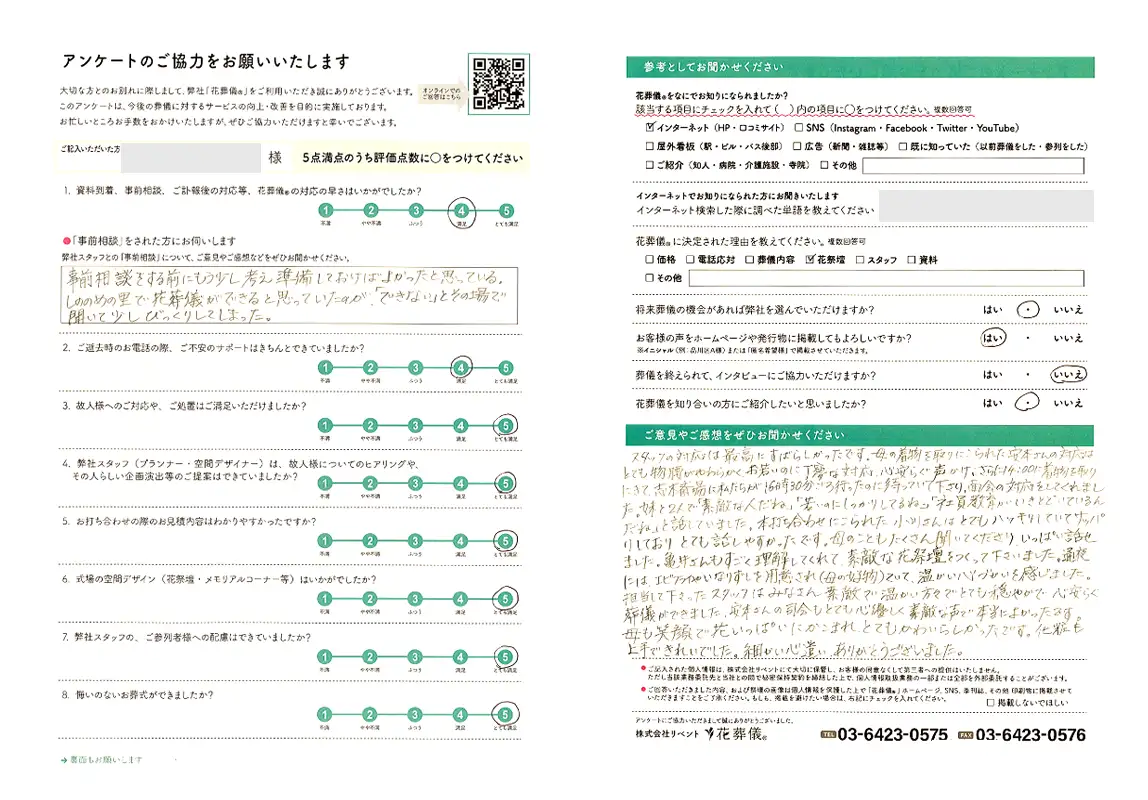 アンケートのご協力をお願いいたします
大切な方とのお別れに際しまして、弊社「花葬儀®」をご利用いただき誠にありがとうございます。
このアンケートは、今後の葬儀に対するサービスの向上・改善を目的に実施しております。
お忙しいところお手数をおかけいたしますが、ぜひご協力いただけますと幸いでございます。
オンラインでの
ご回答はこちら
ご記入いただいた方
様
5点満点のうち評価点数に○をつけてください
1. 資料到着、事前相談、ご訃報後の対応等、花葬儀®の対応の早さはいかがでしたか?
1 2 3 4 5
不満 やや不満 ふつう 満足 とても満足
●「事前相談」をされた方にお伺いします
弊社スタッフとの「事前相談」について、ご意見やご感想などをぜひお聞かせください。
事前相談をする前にもう少し考え準備しておけばよかったと思っている。
しののめの里で花葬儀ができると思っていたのが、「できない」とその場で
聞いて少しびっくりしてしまった。
2. ご逝去時のお電話の際、ご不安のサポートはきちんとできていましたか?
1 2 3 4 5
不満 やや不満 ふつう 満足 とても満足
3. 故人様へのご対応や、ご処置はご満足いただけましたか?
1 2 3 4 5
不満 やや不満 ふつう 満足 とても満足
4. 弊社スタッフ(プランナー・空間デザイナー)は、故人様についてのヒアリングや、
その人らしい企画演出等のご提案はできていましたか?
1 2 3 4 5
不満 やや不満 ふつう 満足 とても満足
5. お打ち合わせの際のお見積内容はわかりやすかったですか?
1 2 3 4 5
不満 やや不満 ふつう 満足 とても満足
6. 式場の空間デザイン(花祭壇・メモリアルコーナー等)はいかがでしたか?
1 2 3 4 5
不満 やや不満 ふつう 満足 とても満足
7. 弊社スタッフの、ご参列者様への配慮はできていましたか?
1 2 3 4 5
不満 やや不満 ふつう 満足 とても満足
8. 悔いのないお葬式ができましたか?
1 2 3 4 5
不満 やや不満 ふつう 満足 とても満足
→裏面もお願いします
参考としてお聞かせください
花葬儀®をなにでお知りになられましたか?
該当する項目にチェックを入れて( )内の項目に○をつけてください。複数回答可
☑インターネット(HP・口コミサイト) □SNS(Instagram・Facebook・Twitter・YouTube)
□屋外看板(駅・ビル・バス後部) □広告(新聞・雑誌等) □既に知っていた(以前葬儀をした・参列をした)
□ご紹介(知人・病院・介護施設・寺院) □その他
インターネットでお知りになられた方にお聞きいたします
インターネット検索した際に調べた単語を教えてください
花葬儀®に決定された理由を教えてください。複数回答可
□価格 □電話応対 □葬儀内容 ☑花祭壇 □スタッフ □資料
□その他
将来葬儀の機会があれば弊社を選んでいただけますか? はい ・ いいえ
お客様の声をホームページや発行物に掲載してもよろしいですか? はい ・ いいえ
※イニシャル(例:品川区A様)または「匿名希望様」で掲載させていただきます。
葬儀を終えられて、インタビューにご協力いただけますか? はい ・ いいえ
花葬儀を知り合いの方にご紹介したいと思いましたか? はい ・ いいえ
ご意見やご感想をぜひお聞かせください
スタッフの対応は最高にすばらしかったです。母の着物を取りにこられた安本さんの対応は
とても物腰がやわらかくお若いのに丁寧な対応、心安らぐ声かけ、さらに14:00に着物を取り
にきて、斎場に私たちが16時30分ごろ行ったのに待っていて下さり、面会の対応をしてくれまし
た。妹と2人で「素敵な人だね」「若いのにしっかりしてるね」「社員教育がいきとどいているん
だね」と話していました。本打ち合わせにこられた小川さんはとてもハッキリしていてサッパ
りしておりとても話しやすかったです。母のこともたくさん聞いてくださり、いっぱい話せ
ました。亀井さんもすごく理解してくれて素敵な花祭壇をつくって下さいました。通夜
には、いなりずしを用意され(母の好物)ていて、温かい心づかいを感じました。
担当して下さったスタッフはみなさん素敵で温かい方々でとても穏やかで心安らぐ
葬儀ができました。安本さんの司会もとても心優しく素敵な声で本当によかったです。
母も笑顔で花いっぱいにかこまれ、とてもかわいらしかったです。化粧も
上手できれいでした。細かい心遣い、ありがとうございました。
●ご記入された個人情報は、株式会社リベントにて大切に保管し、お客様の同意なくして第三者への提供はいたしません。
ただし当該業務委託先と当社との間で秘密保持契約を締結した上で、個人情報取扱業務の一部または全部を外部委託することがございます。
●ご回答いただきました内容、および祭壇の画像は個人情報を保護した上で「花葬儀」ホームページ、SNS、季刊誌、その他印刷物に掲載させて
いただきますことをご了承ください。もしも、掲載を避けたい場合は、右記にチェックを入れてください。 □掲載しないでほしい
アンケートにご協力いただきまして誠にありがとうございました。
株式会社リベント 花葬儀® TEL 03-6423-0575 FAX 03-6423-0576